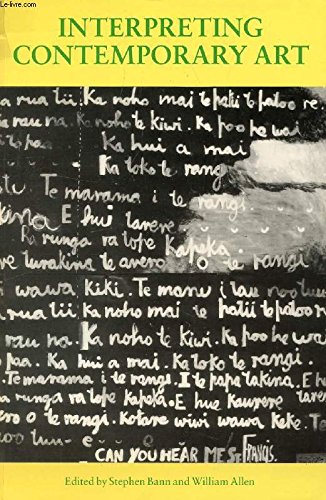 Le-livre.com
INTERPRETING
CONTEMPORARY ART
a rua tii. Ka noho mai te patii te patoo re
rau na. Ka noho te kiwi. Ka poo he wai
i te paa. Ka hui a mai
Ka toko te rangi
Te marama i te rangi.
E hui
Ka runga ra tope Kapeka.
turakina te avero o te rangi
i wawa kiki. Te manu i lau noo
a rua tii. Ka noho mai te patii te patoo
rau na. Ka noho te kiwi. Ka poo he wa
paa. Ka hui a mai. Ka toko te rangi.
Te marama i te rangi. I te papa takina. E h
a runga ra tope kapeka. E hue Kaurere tu
avero o te rangi. Kotare wiwi wawa keke. Te
too luu-e
CAN YOU HEAR ME ST FRANCIS.
Edited by Stephen Bann and William Allen